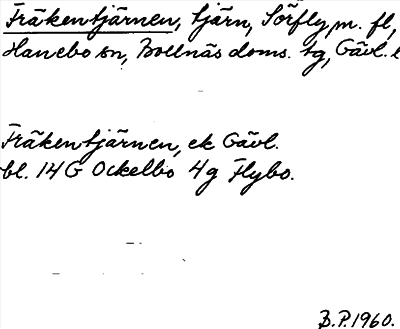 Fräkentjärnen, tjärn, Sörfly m. fl,
Hanebo sn, Bollnäs doms. tg, Gävl. l
Fräkentjärnen, ek Gävl.
bl. 14 G Ockelbo 4g Flybo.
B.P. 1960.